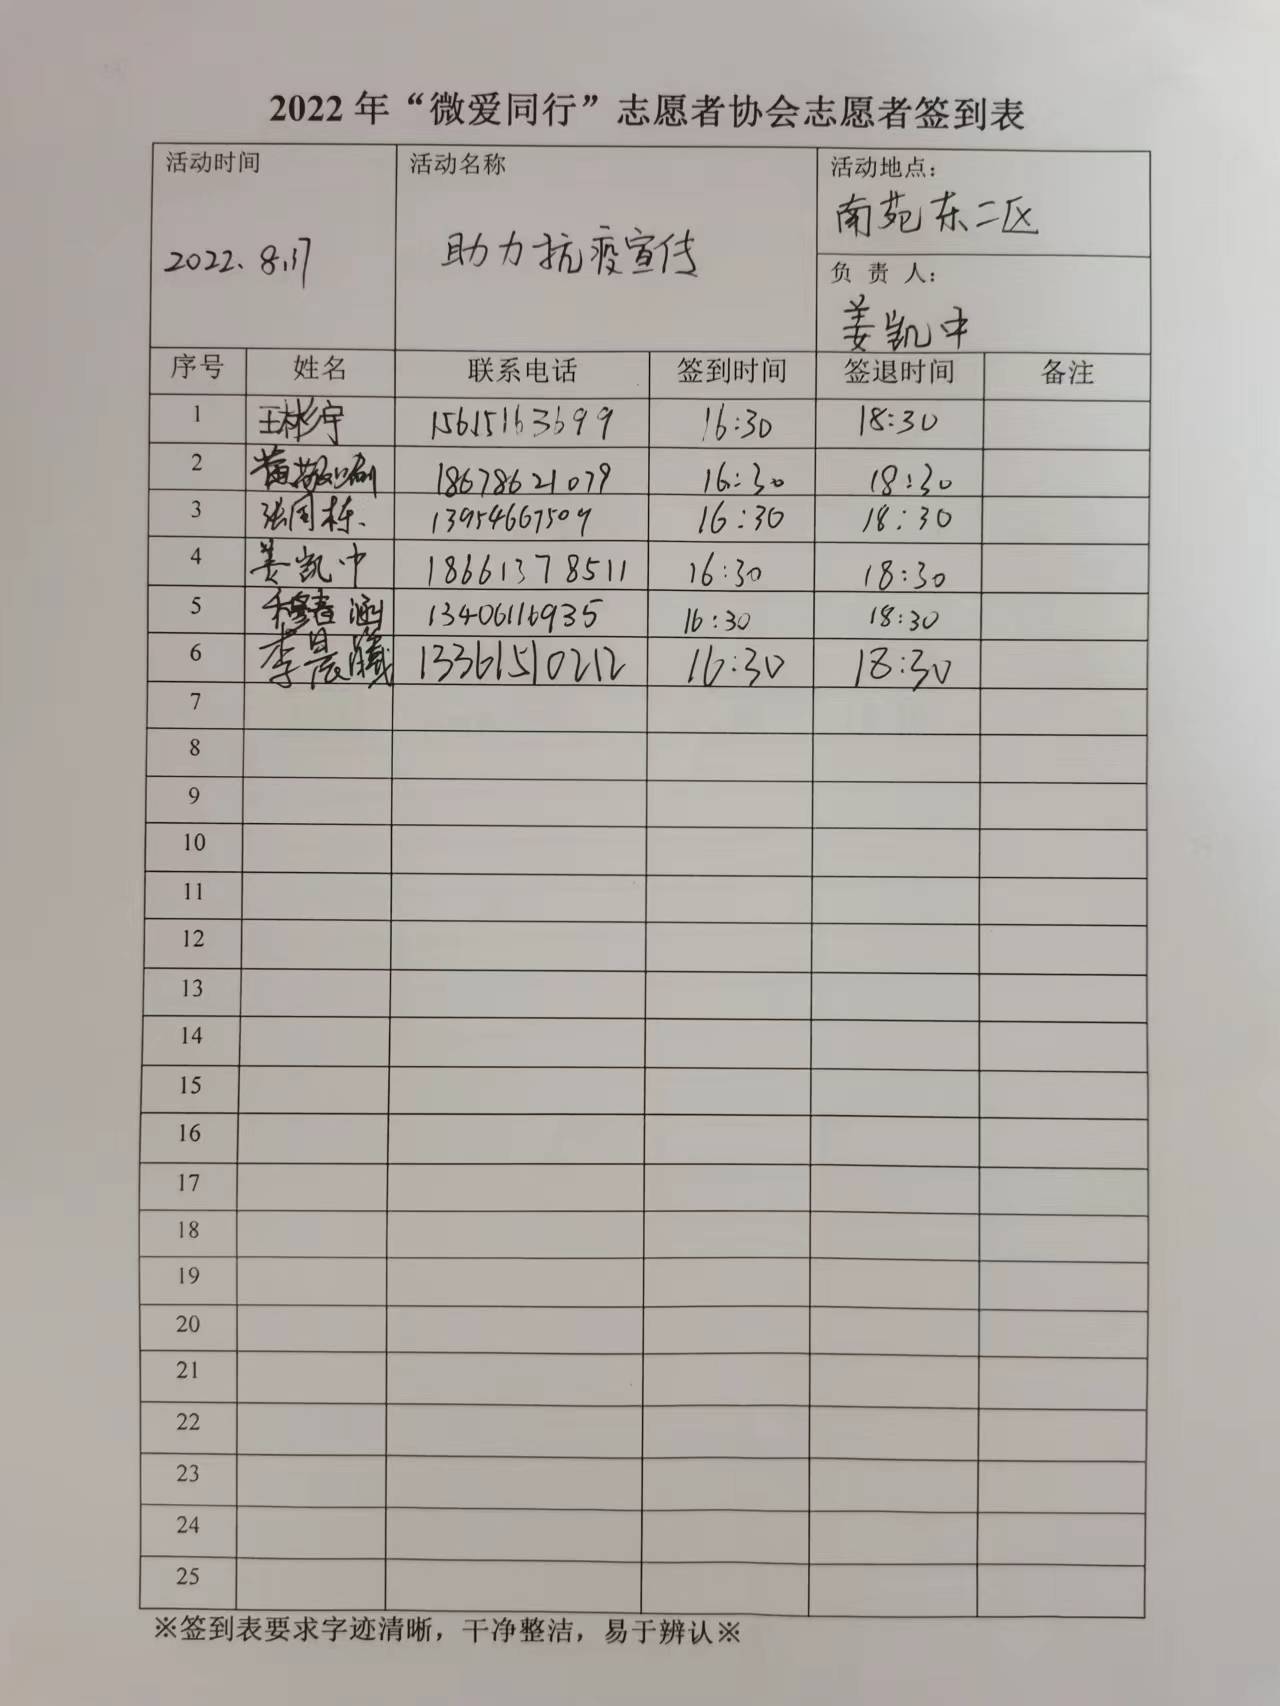 2022年“微爱同行”志愿者协会志愿者签到表
活动时间 活动名称 活动地点：
南苑东二区
2022. 8.17 助力抗疫宣传
负 责 人：
姜凯中
序号 姓名 联系电话 签到时间 签退时间 备注
1 王彬宇 15615163699 16:30 18:30
2 18678621079 16:30 18:30
3 张周栋 13954667509 16:30 18:30
4 姜凯中 18661378511 16:30 18:30
5 穆春涵 13406116935 16:30 18:30
6 李晨曦 13361510212 16:30 18:30
7
8
9
10
11
12
13
14
15
16
17
18
19
20
21
22
23
24
25
※签到表要求字迹清晰，干净整洁，易于辨认※